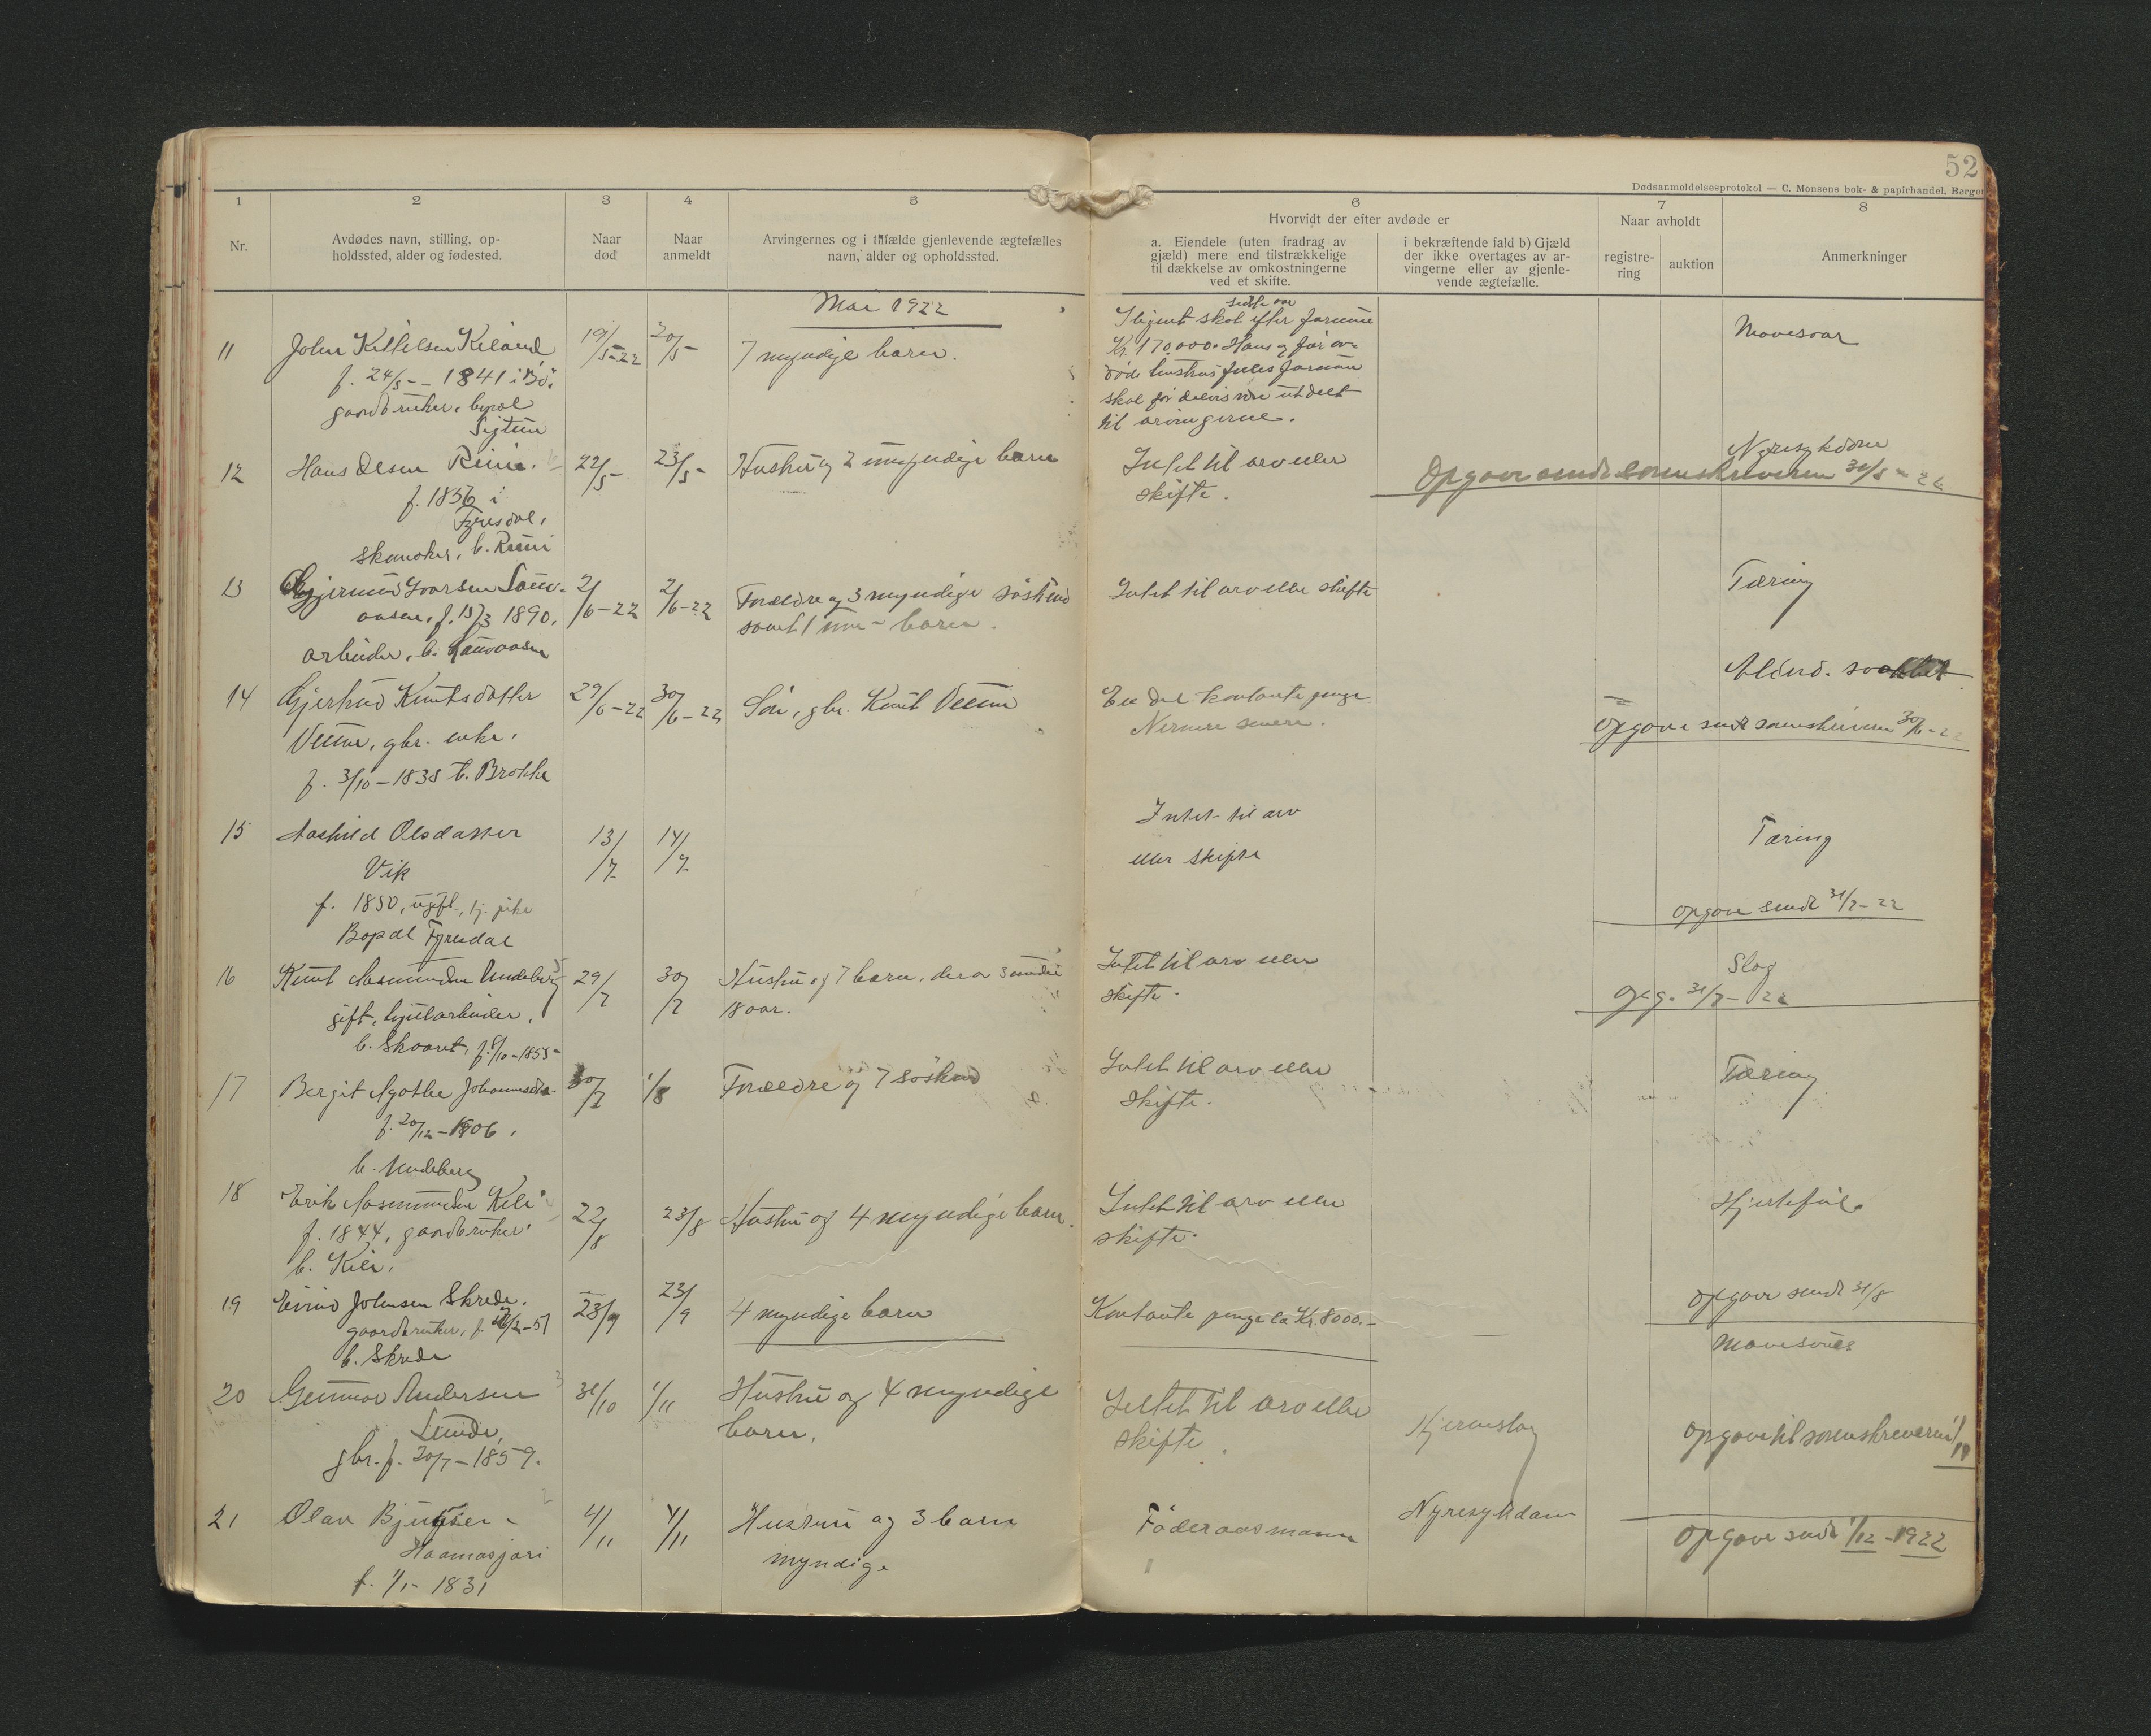 52
Dødsanmeldelsesprotokol — C. Monsens bok- & papirhandel, Bergen
1
2
3
4
5
6
7
8
Nr.
Avdødes navn, stilling, op-
holdssted, alder og fødested.
Naar
død
Naar
anmeldt
Arvingernes og i tilfælde gjenlevende ægtefælles
navn, alder og opholdssted.
Hvorvidt der efter avdøde er
a. Eiendele (uten fradrag av
gjæld) mere end tilstrækkelige
til dækkelse av omkostningerne
ved et skifte.
i bekræftende fald b) Gjæld
der ikke overtages av ar-
vingerne eller av gjenle-
vende ægtefælle.
Naar avholdt
registre-
ring
auktion
Anmerkninger
Mai 1922
11
John Kittelsen Kiland
f. 24/5 - 1841 i
gaardbruker, bopæl
19/5-22
20/5
7 myndige barn.
siste aar
Ilignet skat efter formue
Kr. 170.000. Hans og før av-
døde hustrus fælles formue
skal for delvis utdelt
til arvingerne.
Mavesaar
12
Hans Olsen
f. 1856 i
Fyresdal,
b.
22/5-
23/5-
Hustru og 2 umyndige barn
Intet til arv eller
skifte.
Nyresykdom
Opgave sendt sorenskriveren 31/5-22
13
Gjermund Ivarsen
f. 15/3 1890.
arbeider, b.
2/6-22
2/6-22
Forældre og 3 myndige søskend
samt 1 barn.
Intet til arv eller skifte
Tæring
14
Gjertrud Knutsdatter
Veum, gbr. enke,
f. 3/10-1838 b. Brokke
29/6-22
30/6-22
Søn, gbr. Knut Veum
En del kontante penge
Nærmere senere.
Alderd.
Opgave sendt sorenskriveren 30/6-22
15
Aashild Olsdatter
Vik
f. 1850, ugift, tj. pike
Bopæl Fyresdal
13/7
14/7
Intet til arv
eller skifte
Tæring
opgave sendt 31/7-22
16
Knut Aasmundsen Undeberg
gift, hjularbeider,
b. Skaaret, f. 8/10-1855
29/7
30/7
Hustru og 7 barn, derav 3 under
18 aar.
Intet til arv eller
skifte.
Slag
Opg. 31/7-22
17
Bergit Agathe Johannesdtr.
f. 20/12-1906.
b. Undeberg
30/7
1/8
Forældre og 7 søskend
Intet til arv eller
skifte.
Tæring
18
Erik Aasmundsen Kile
f. 1844, gaardbruker
b. Kile.
22/8
23/8
Hustru og 4 myndige barn.
Intet til arv eller
skifte.
Hjertefeil
opgave sendt 31/8
19
Eivind Johnsen Skrede.
gaardbruker, f.
b. Skrede
23/9
23/9
4 myndige barn
Kontante penge ca Kr. 8000.-
—
20
Gunnar Andersen
Lunde,
gbr. f. 20/7-1859.
31/10
1/11
Hustru og 4 myndige
barn.
Intet til arv eller
skifte.
Hjerneslag
opgave til sorenskriveren
21
Olav
f. 1/1-1831
4/11
4/11
Hustru og 3 barn
myndige
Føderaadsmann
Nyresykdom
opgave sendt 1/12-1922